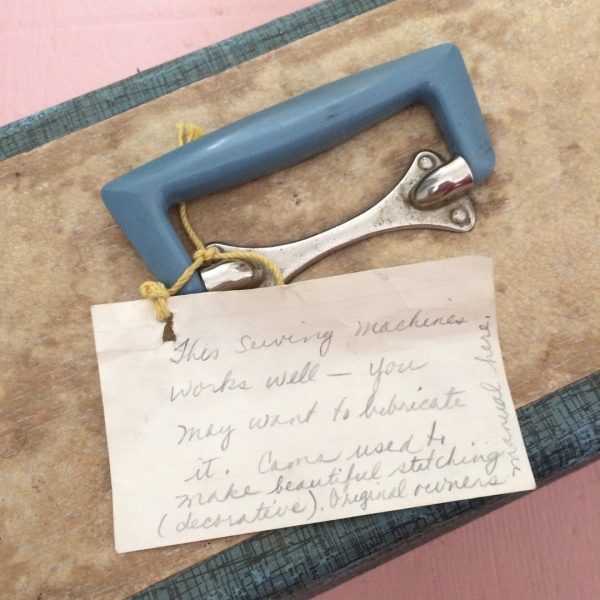 This Sewing Machines
works well — you
may want to lubricate
it. Cams used to
make beautiful stitching
(decorative). Original owners
manual here.